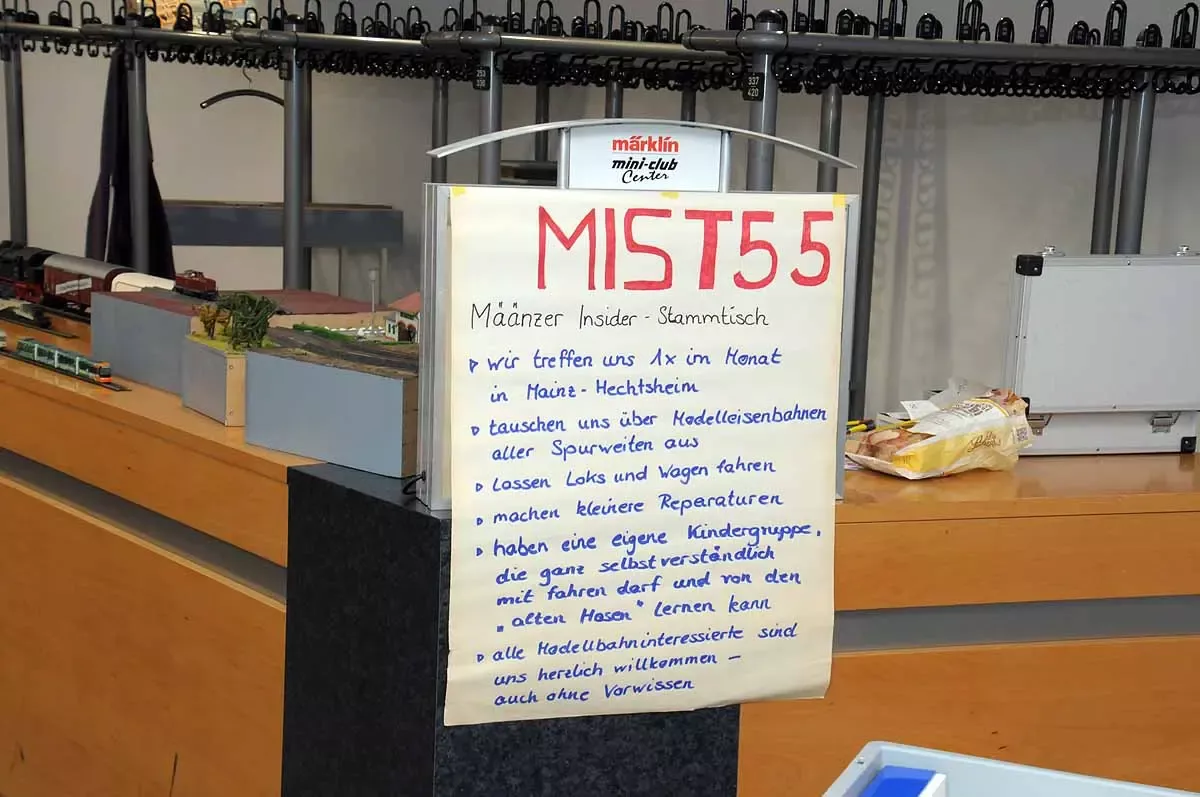 253
336
337
420
märklin
mini-club
Center
MIST55
Määnzer Insider - Stammtisch
▹ wir treffen uns 1x im Monat
in Mainz - Hechtsheim
▹ tauschen uns über Modelleisenbahnen
aller Spurweiten aus
▹ lassen Loks und Wagen fahren
▹ machen kleinere Reparaturen
▹ haben eine eigene Kindergruppe,
die ganz selbstverständlich
mit fahren darf und von den
„alten Hasen" lernen kann
▹ alle Modellbahninteressierte sind
uns herzlich willkommen –
auch ohne Vorwissen